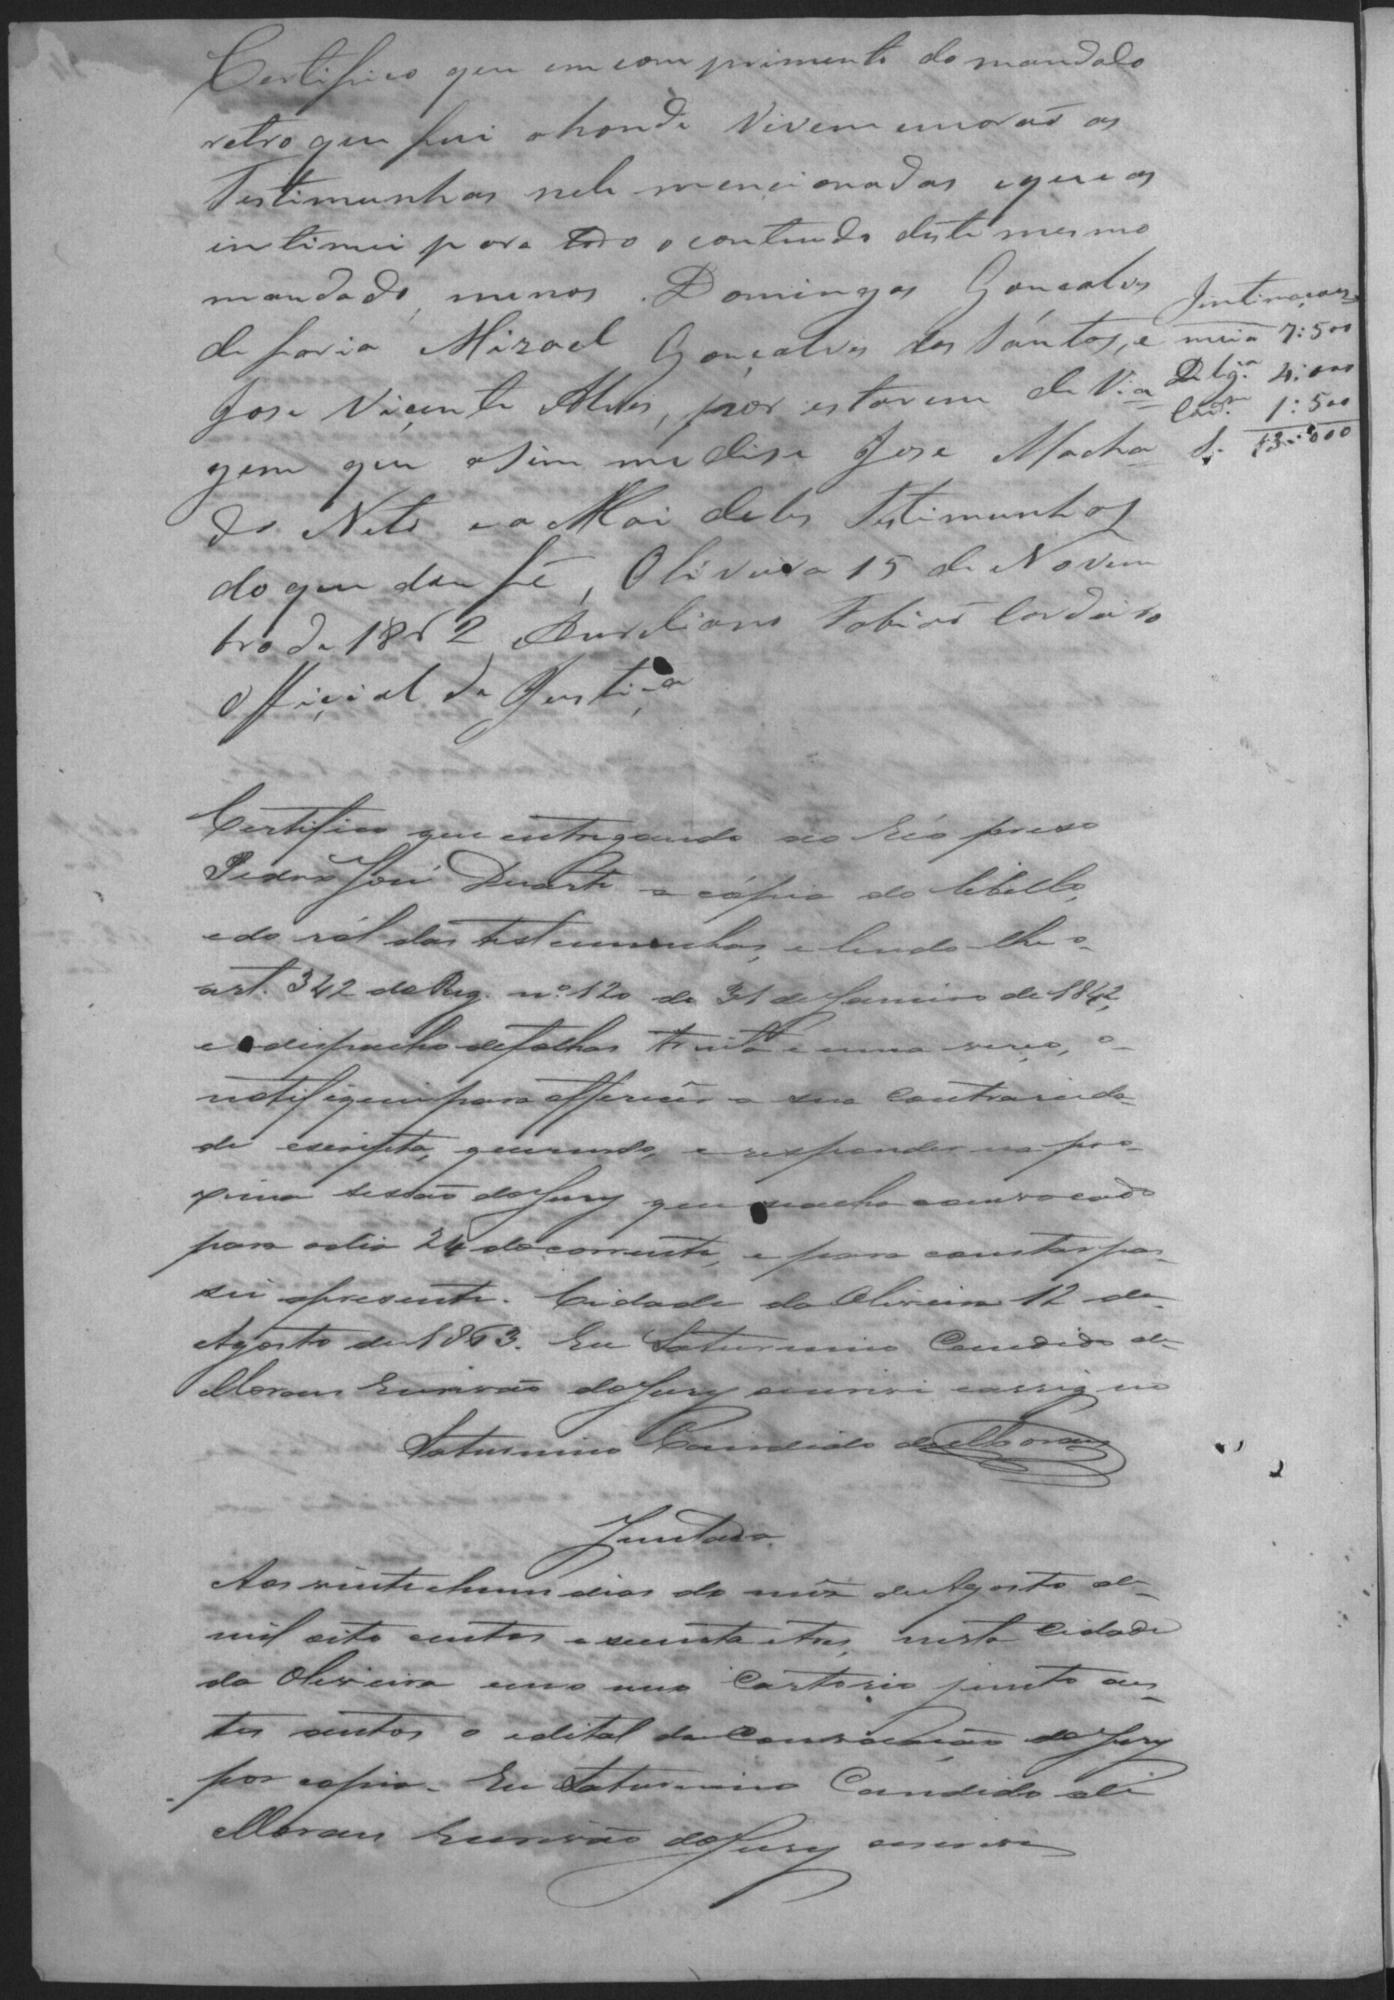 Certifico que em comprimento do mandado
retro que fui ahonde vivem emorão as
Testimunhas nele mencionadas eque as
intimei para todo o contiudo deste mesmo
mandado, menos Domingos Gonçalves
de faria Mizael Gonçalves dos Santos, e
Jose Viçente Alves, por estarem de Via
gem que asim me dise Jose Macha
do Neto e a Mai deles Testimunhas
do que dou fé, Oliveira 15 de Novem
bro de 1862 Aureliano Tobias Cordeiro
Offiçial de Justiça
Intimaçoens
meia 7:500
Delga. 4:000
1:500
S. 13:000
Certifico que entregando ao Réo preso
Pedro José Duarte a cópia do libello,
e do ról das testemunhas, e lendo-lhe o
art. 342 do Reg. nº 120 de 31 de Janeiro de 1842,
e o dispacho de folhas trinta e uma verço, o
notifiquei para offerecer a sua contrarieda-
de escripta, querendo, e responder na pro-
xima sessão do Jury que se acha convocado
para o dia 24 do corrente, e para constar pas-
sei apresente. Cidade da Oliveira 12 de
Agosto de 1863. Eu Saturnino Candido de
Moraes Escrivão do Jury escrivi e assigno
Saturnino Candido de Moraes
Juntada
Aos vinte e hum dias do mêz de Agosto de
mil oito centos e secenta e tres, nesta Cidade
da Oliveira em o meu Cartorio junto aes-
tes autos o edital da Convocação do Jury
por copia. Eu Saturnino Candido de
Moraes Escrivão do Jury escrevi